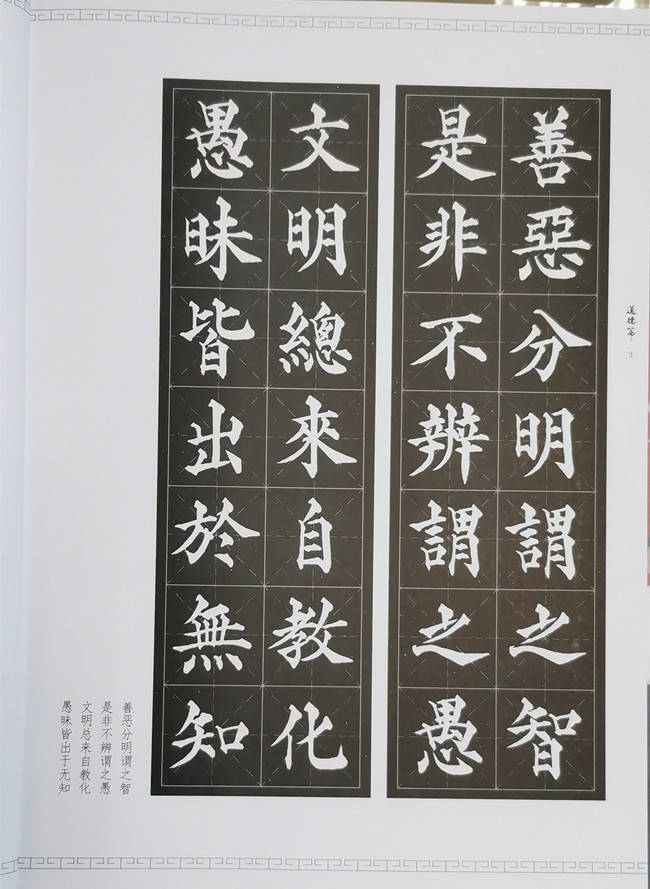 善惡分明謂之智
是非不辨謂之愚
文明總來自教化
愚昧皆出於無知
道德篇
3
善恶分明谓之智
是非不辨谓之愚
文明总来自教化
愚昧皆出于无知